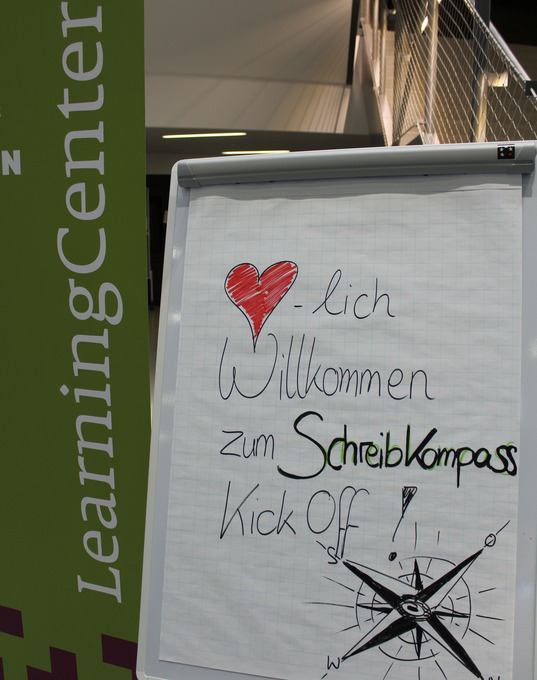 LearningCenter
N
-lich
Willkommen
zum Schreibkompass
Kick Off!
S
O
W
N